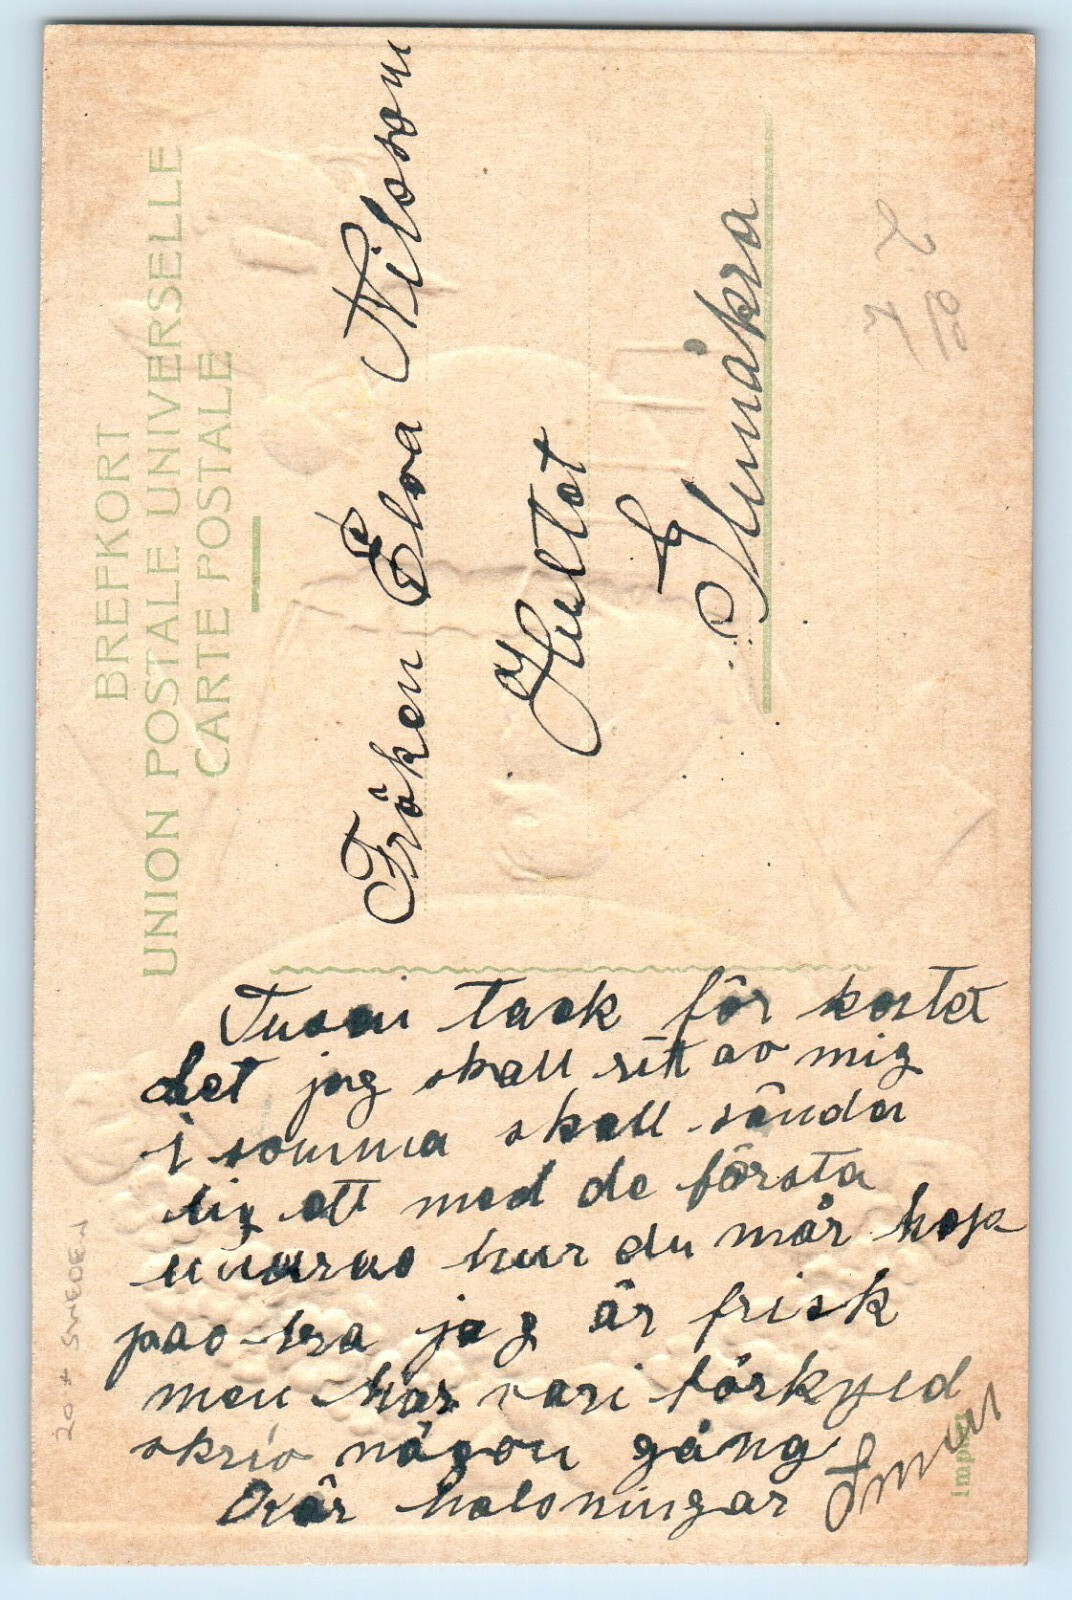 BREFKORT
UNION POSTALE UNIVERSELLE
CARTE POSTALE
Fröken Elva Nilsson
Hultet
Glimåkra
Tusen tack för kortet
det jag skall sitt av mig
i somma skall sända
dig ett med de första
hur du mår hop
pas bra jag är frisk
men har vari förkyld
skriv någon gång
Kär halsningar
Import
20 + SWEDEN